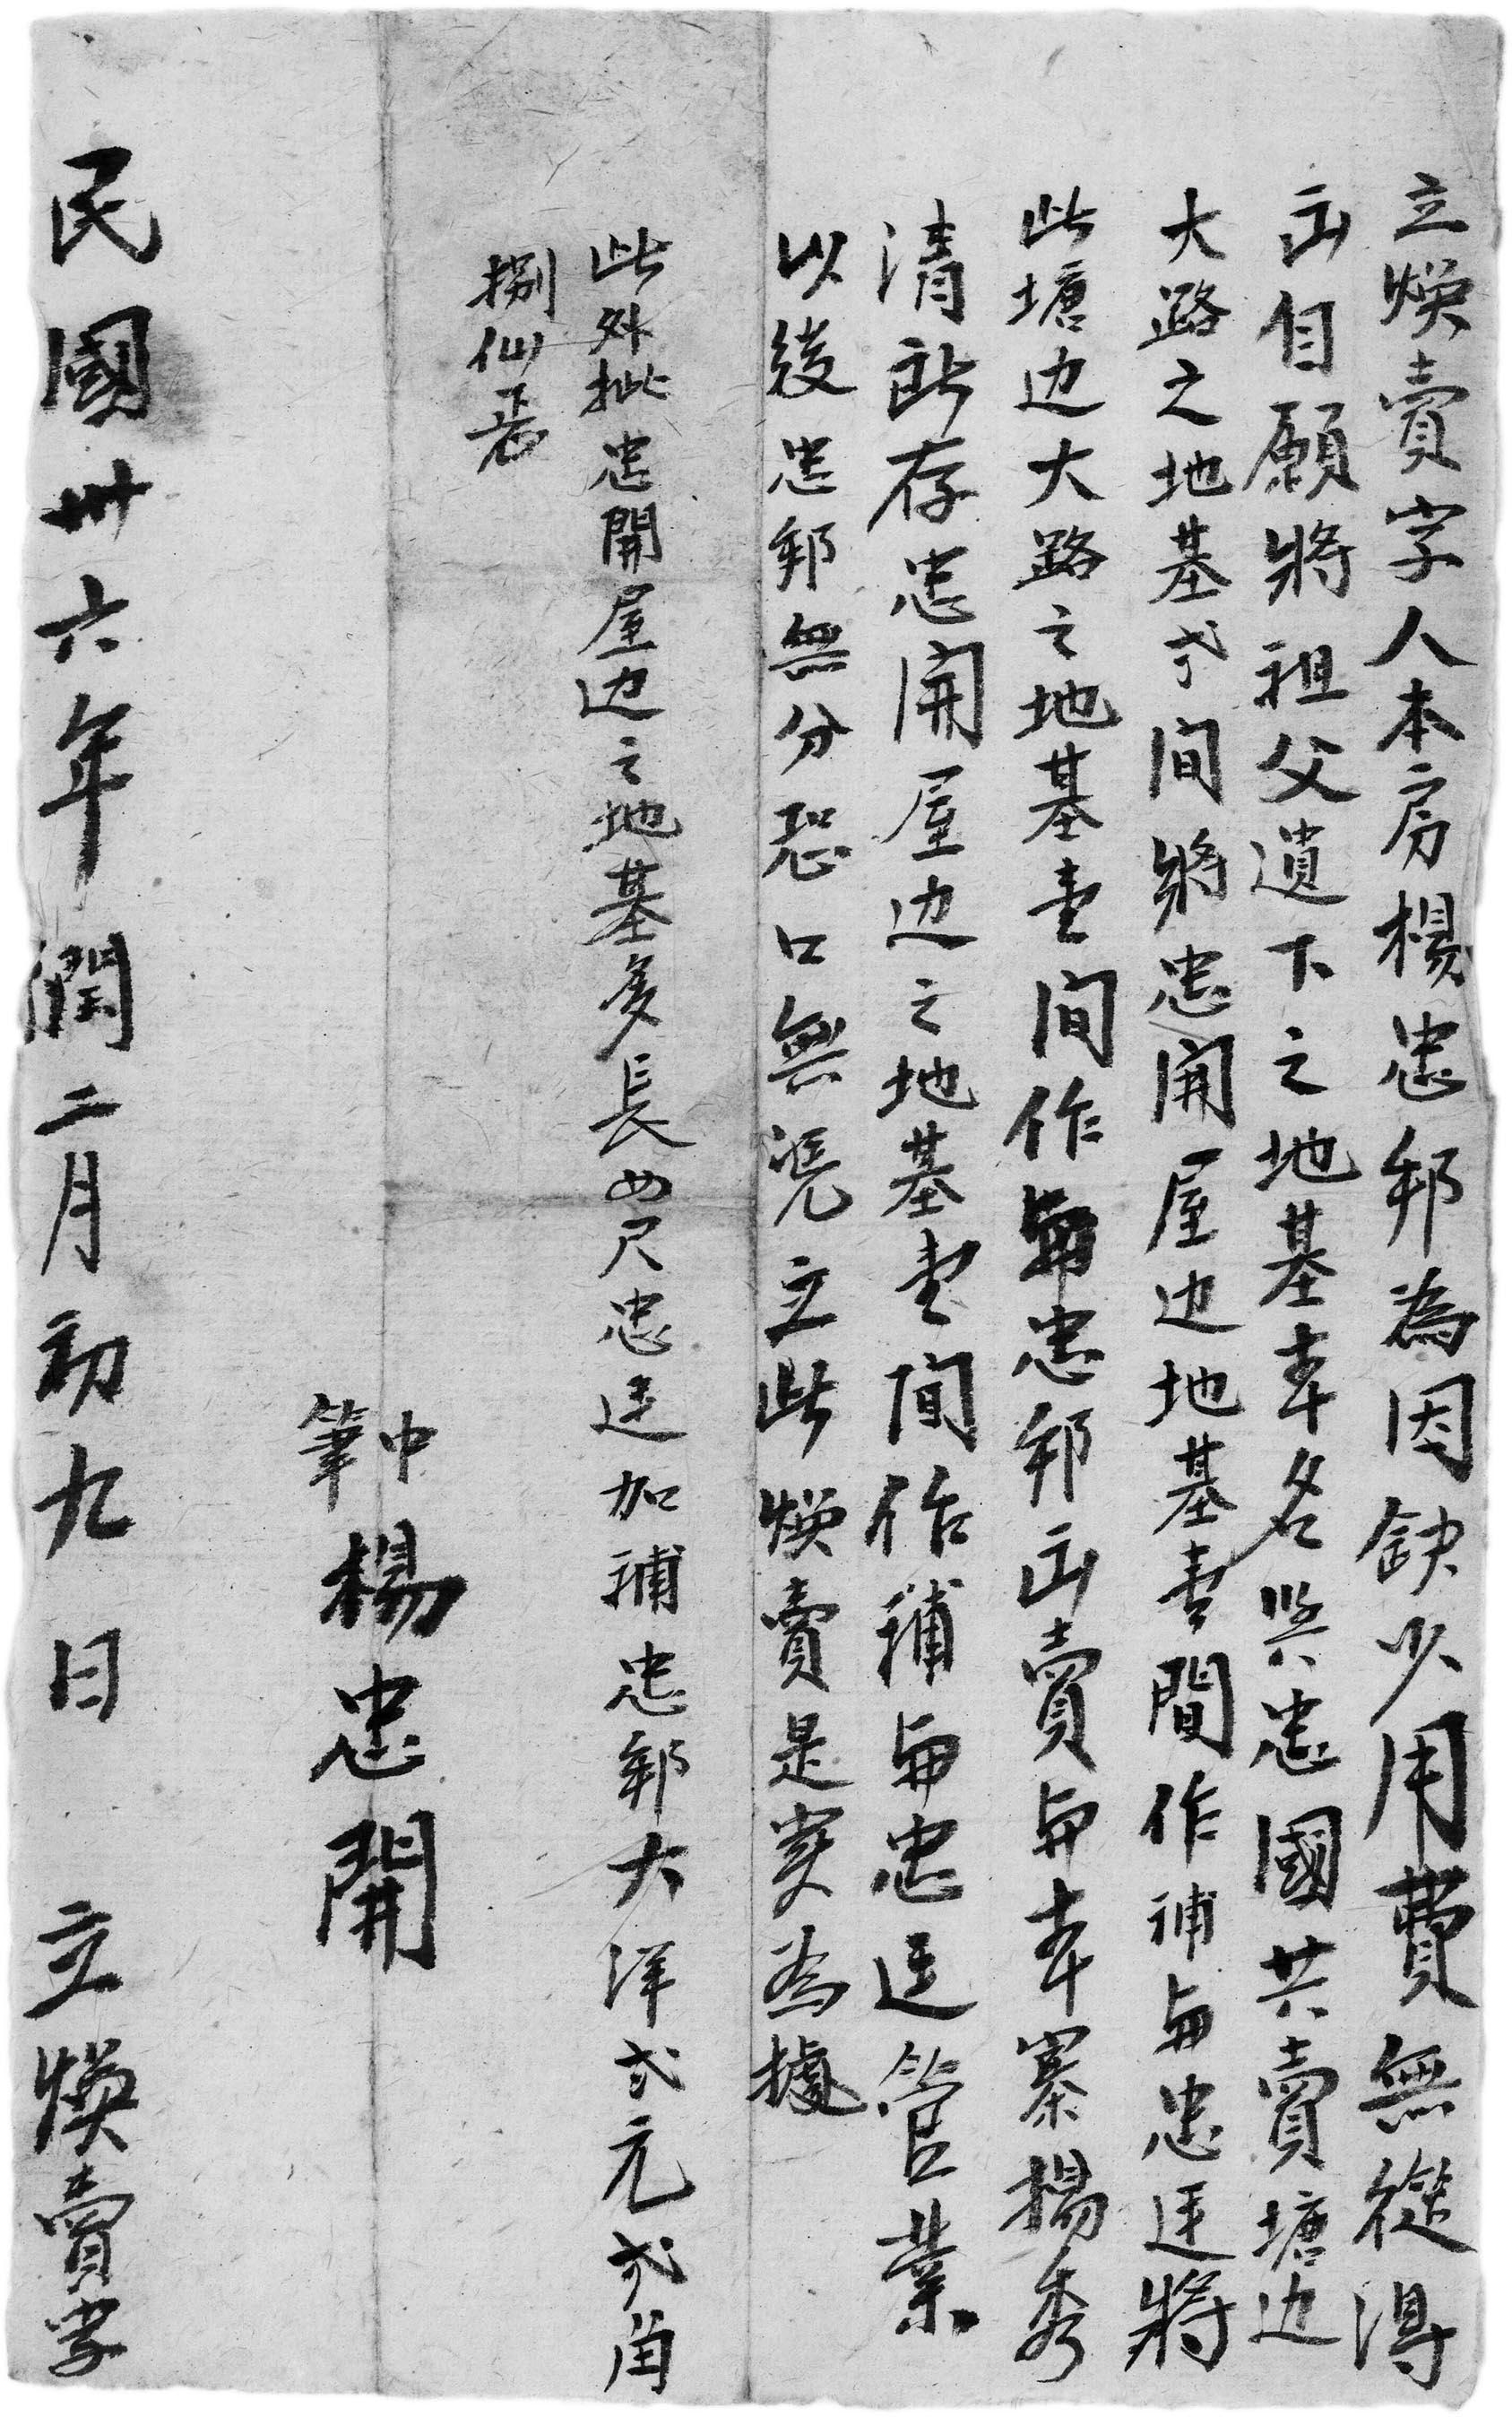 立煥賣字人本房楊忠邦為因缺少用費無從得
出自願將祖父遺下之地基本名與忠國共賣塘边
大路之地基弍間將忠開屋边地基壹間作補與忠廷將
此塘边大路之地基壹間作與忠邦出賣與本寨楊秀
清所存忠開屋边之地基壹間作補與忠廷管業
以後忠邦無分恐口無凴立此煥賣是実為據
此外批忠開屋边之地基多長四尺忠廷加補忠邦大洋弍元弍角
捌仙正
中
筆
楊忠開
民國卅六年潤二月初九日 立煥賣字